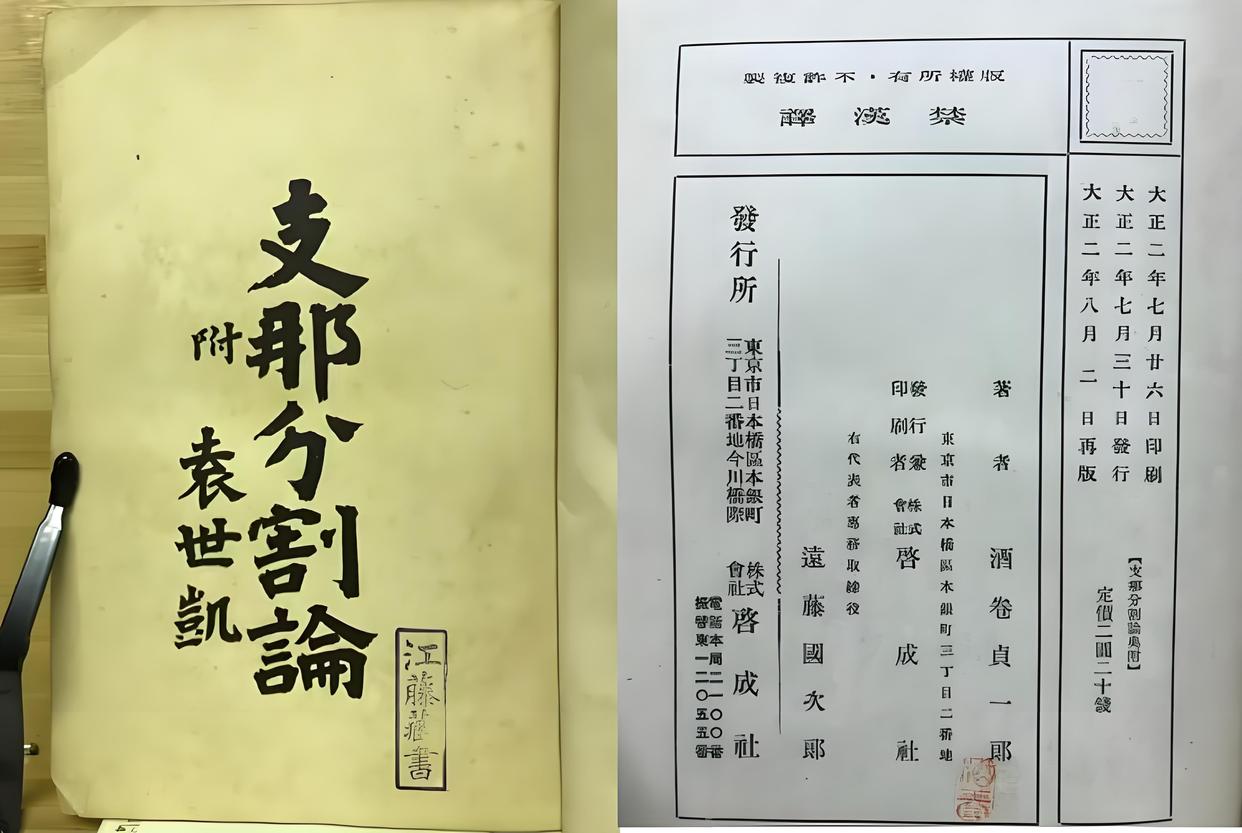 支那分割論
附 袁世凱
江藤藏書
版權所有・不許複製
禁漢譯
大正二年七月廿六日印刷
大正二年七月三十日發行
大正二年八月二日再版
【支那分割論奧附】
定價二圓二十錢
著者 酒卷貞一郎
東京市日本橋區本銀町三丁目二番地
發行兼
印刷者 株式會社 啓成社
有代表者專務取締役
遠藤國次郎
發行所
東京市日本橋區本銀町
三丁目二番地今川橋際
株式會社 啓成社
電話本局二一〇〇番
振替東京一二〇五五番